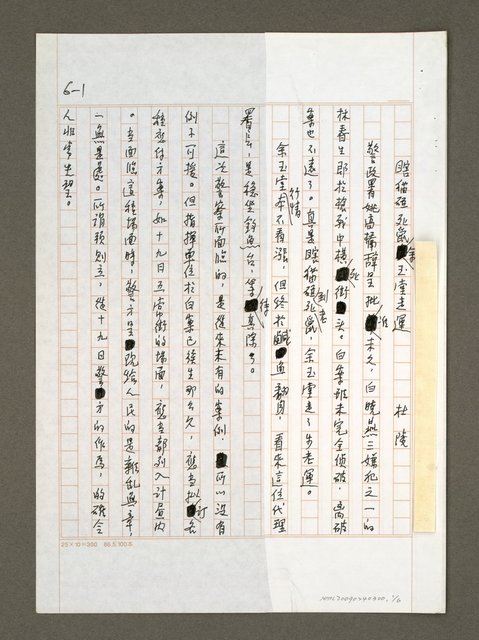 6—1
瞎貓碰死鼠 余玉堂走運
杜陵
警政署姚高橋辭呈批准未久，白曉燕三嫌犯之一的
林春生即於槍戰中橫死街頭。白案雖未完全偵破，離破
案也不遠了。真是瞎貓碰到死老鼠，余玉堂走了步老運。
余玉堂行情本不看漲，但終於鹹魚翻身，看來這位代理
署長，是穩坐釣魚台，等待真除了。
這次警察所面臨的，是從來未有的案例，所以沒有
例子可援。但指揮單位於白案已發生那麼久，應當擬訂各
種應付方案，如十九日五常街的場面，應當都列入計畫內
。當面臨這種場面時，警方呈現給人民的是雜亂無章，
一無是處。所謂預則立，從十九日警方的作為，的確令
人非常失望。
25×10=250